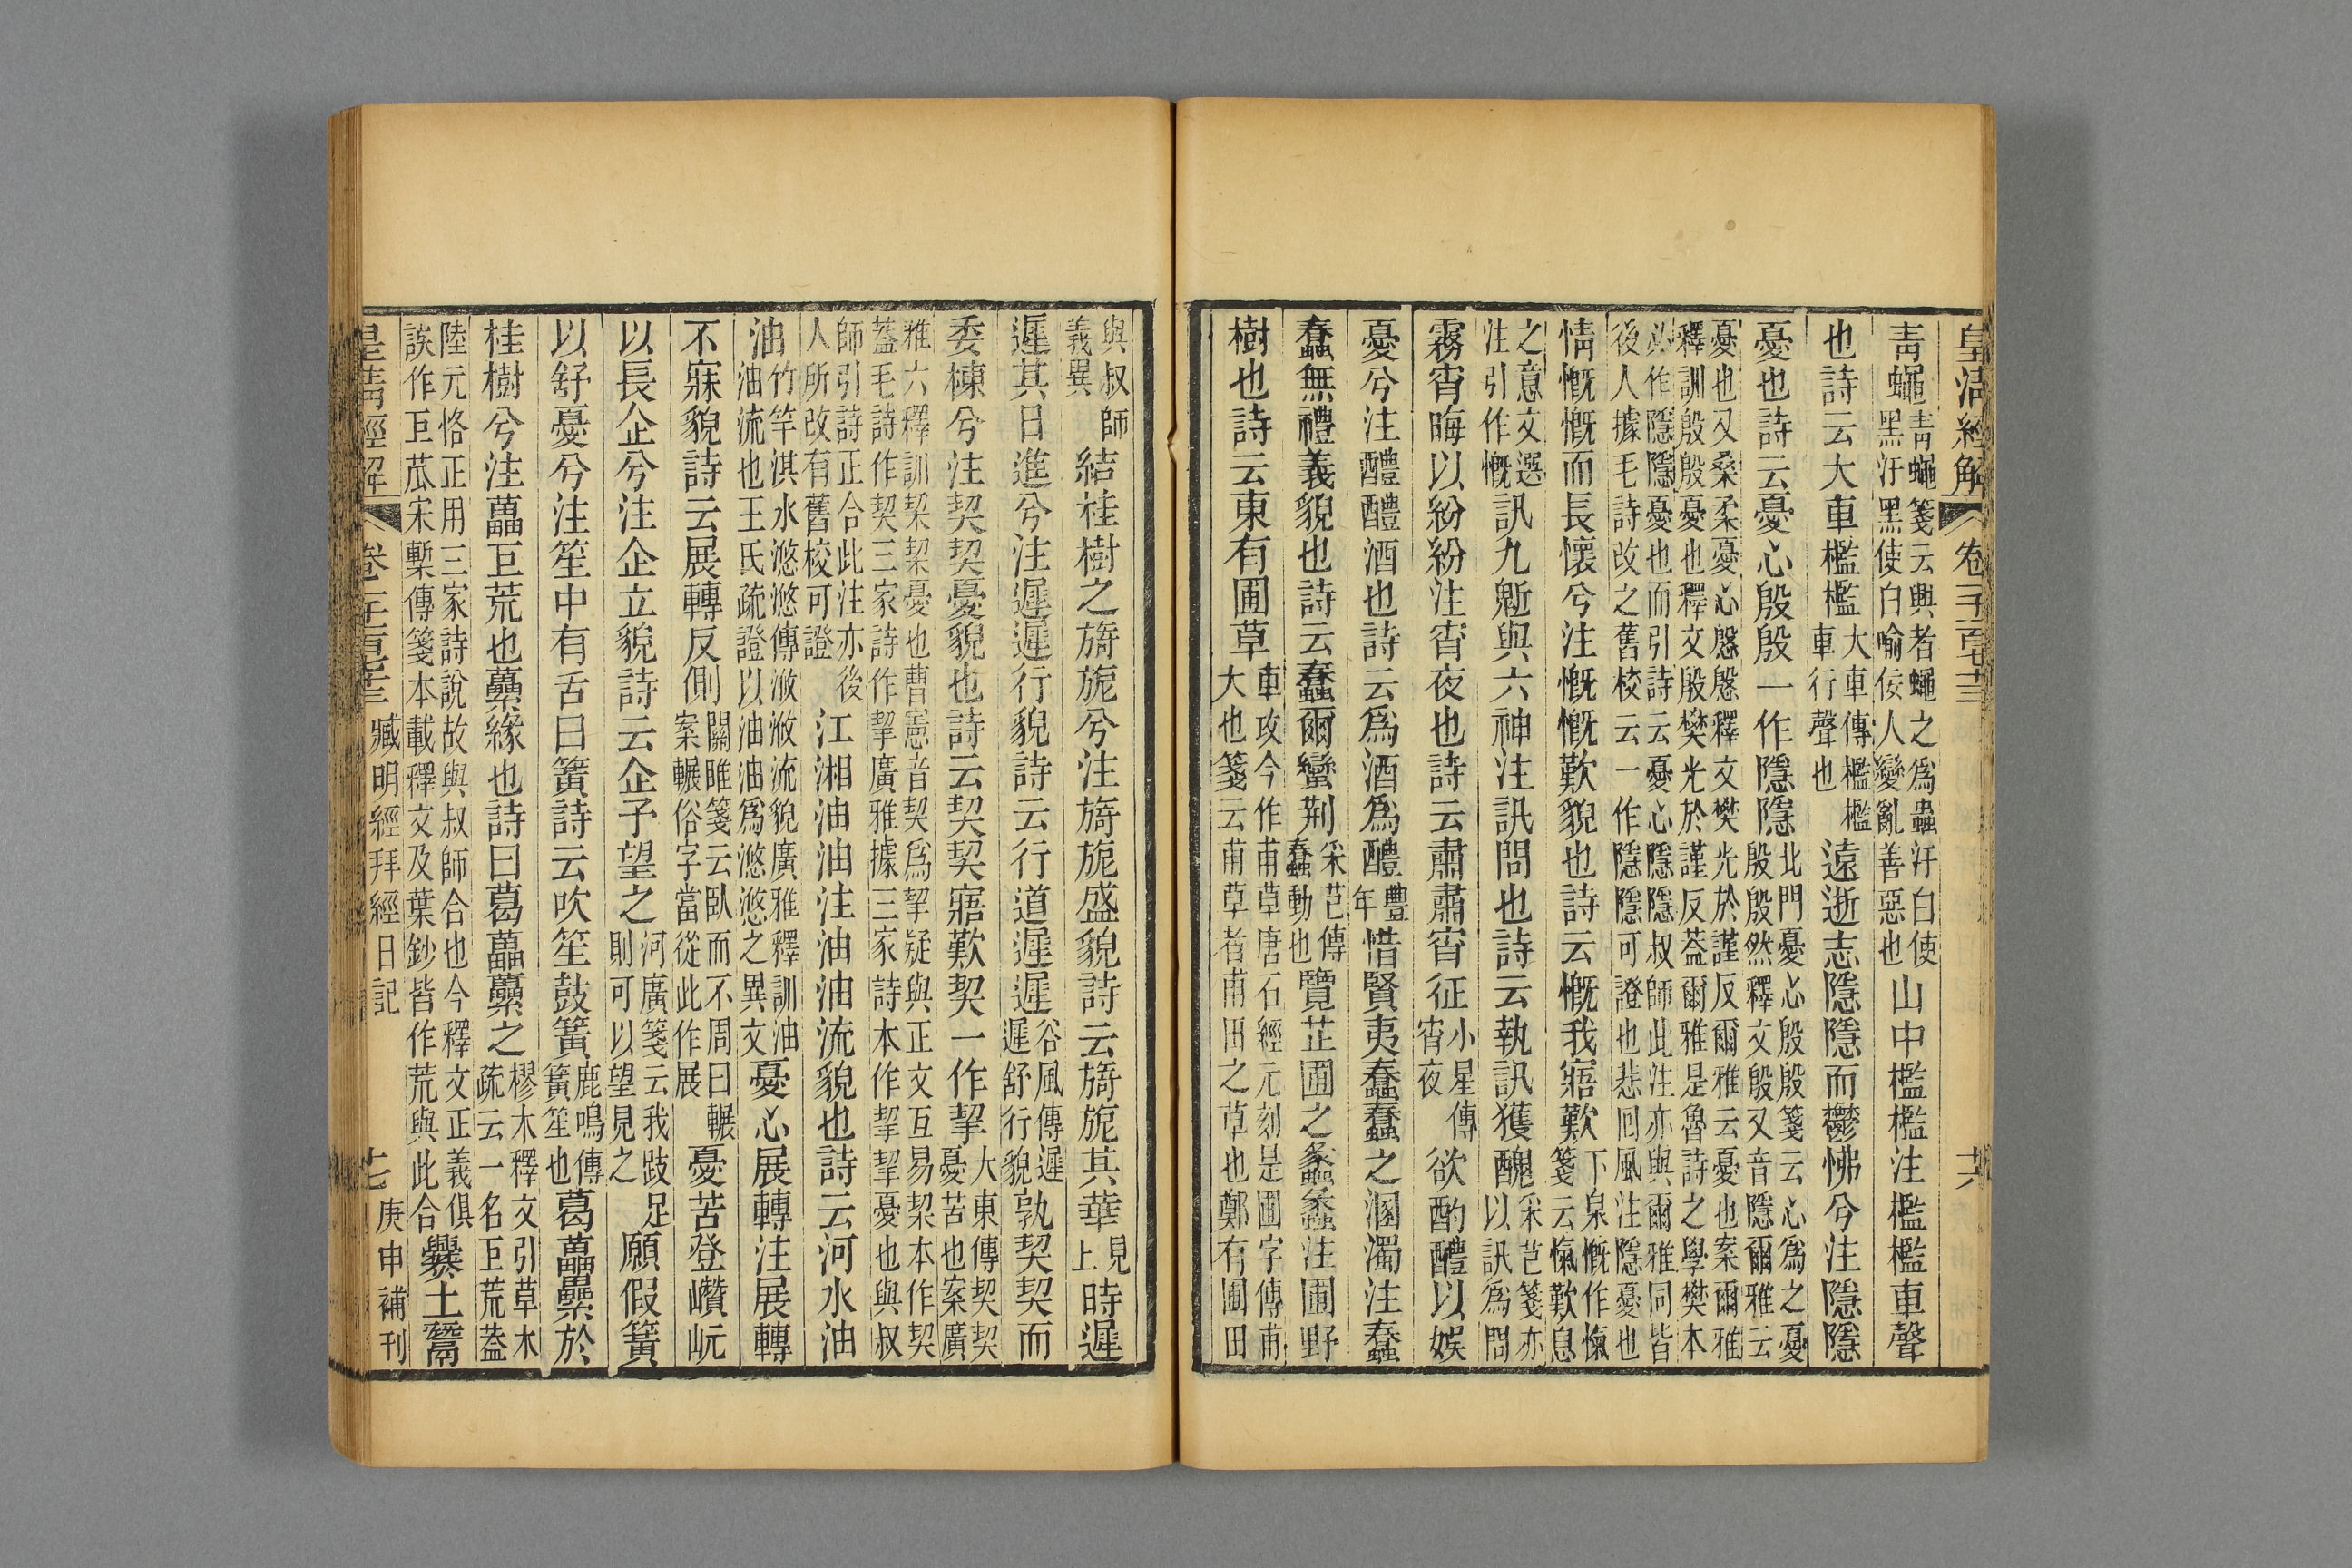 皇淸經解 卷一千一百七十三 十六
靑蠅靑蠅箋云興者蠅之爲蟲汙白使
黑汙黑使白喻佞人變亂善惡也山中檻檻注檻檻車聲
也詩云大車檻檻大車傳檻檻
車行聲也遠逝志隱隱而鬱怫兮注隱隱
憂也詩云憂心殷殷一作隱隱北門憂心殷殷箋云心爲之憂
殷殷然釋文殷又音隱爾雅云
憂也又桑柔憂心慇慇釋文樊光於謹反爾雅云憂也案爾雅
釋訓殷殷憂也釋文殷樊光於謹反葢爾雅是魯詩之學樊本
作隱隱憂也而引詩云憂心隱隱叔師此注亦與爾雅同皆
後人據毛詩改之舊校云一作隱隱可證也悲囘風注隱憂也
情慨慨而長懷兮注慨慨歎貌也詩云慨我寤歎下泉慨作愾
箋云愾歎息
之意文選
注引作慨訊九鬿與六神注訊問也詩云執訊獲醜采芑箋亦
以訊爲問
霧宵晦以紛紛注宵夜也詩云肅肅宵征小星傳
宵夜欲酌醴以娛
憂兮注醴醴酒也詩云爲酒爲醴豐
年惜賢夷蠢蠢之溷濁注蠢
蠢無禮義貌也詩云蠢爾蠻荆采芑傳
蠢動也覽芷圃之蠡蠡注圃野
樹也詩云東有圃草車攻今作甫草唐石經元刻是圃字傳甫
大也箋云甫草者甫田之草也鄭有圃田
與叔師
義異結桂樹之旖旎兮注旖旎盛貌詩云旖旎其華見
上時遲
遲其日進兮注遲遲行貌詩云行道遲遲谷風傳遲
遲舒行貌孰契契而
委棟兮注契契憂貌也詩云契契寤歎契一作挈大東傳契契
憂苦也案廣
雅六釋訓栔栔憂也曹憲音契契爲挈疑與正文互易栔本作契
葢毛詩作契三家詩作挈廣雅據三家詩本作挈挈憂也與叔
師引詩正合此注亦後
人所改有舊校可證江湘油油注油油流貌也詩云河水油
油竹竿淇水滺滺傳浟浟流貌廣雅釋訓油
油流也王氏疏證以油油爲滺滺之異文憂心展轉注展轉
不寐貌詩云展轉反側關雎箋云臥而不周曰輾
案輾俗字當從此作展憂苦登巑岏
以長企兮注企立貌詩云企予望之河廣箋云我跂足
則可以望見之願假簧
以舒憂兮注笙中有舌曰簧詩云吹笙鼓簧鹿鳴傳
簧笙也葛藟虆於
桂樹兮注藟巨荒也虆緣也詩曰葛藟虆之樛木釋文引草木
疏云一名巨荒葢
陸元恪正用三家詩說故與叔師合也今釋文正義俱
誤作巨苽宋槧傳箋本載釋文及葉鈔皆作荒與此合爨土鬵
皇淸經解 卷一千一百七十三 臧明經拜經日記 十七 庚申補刊